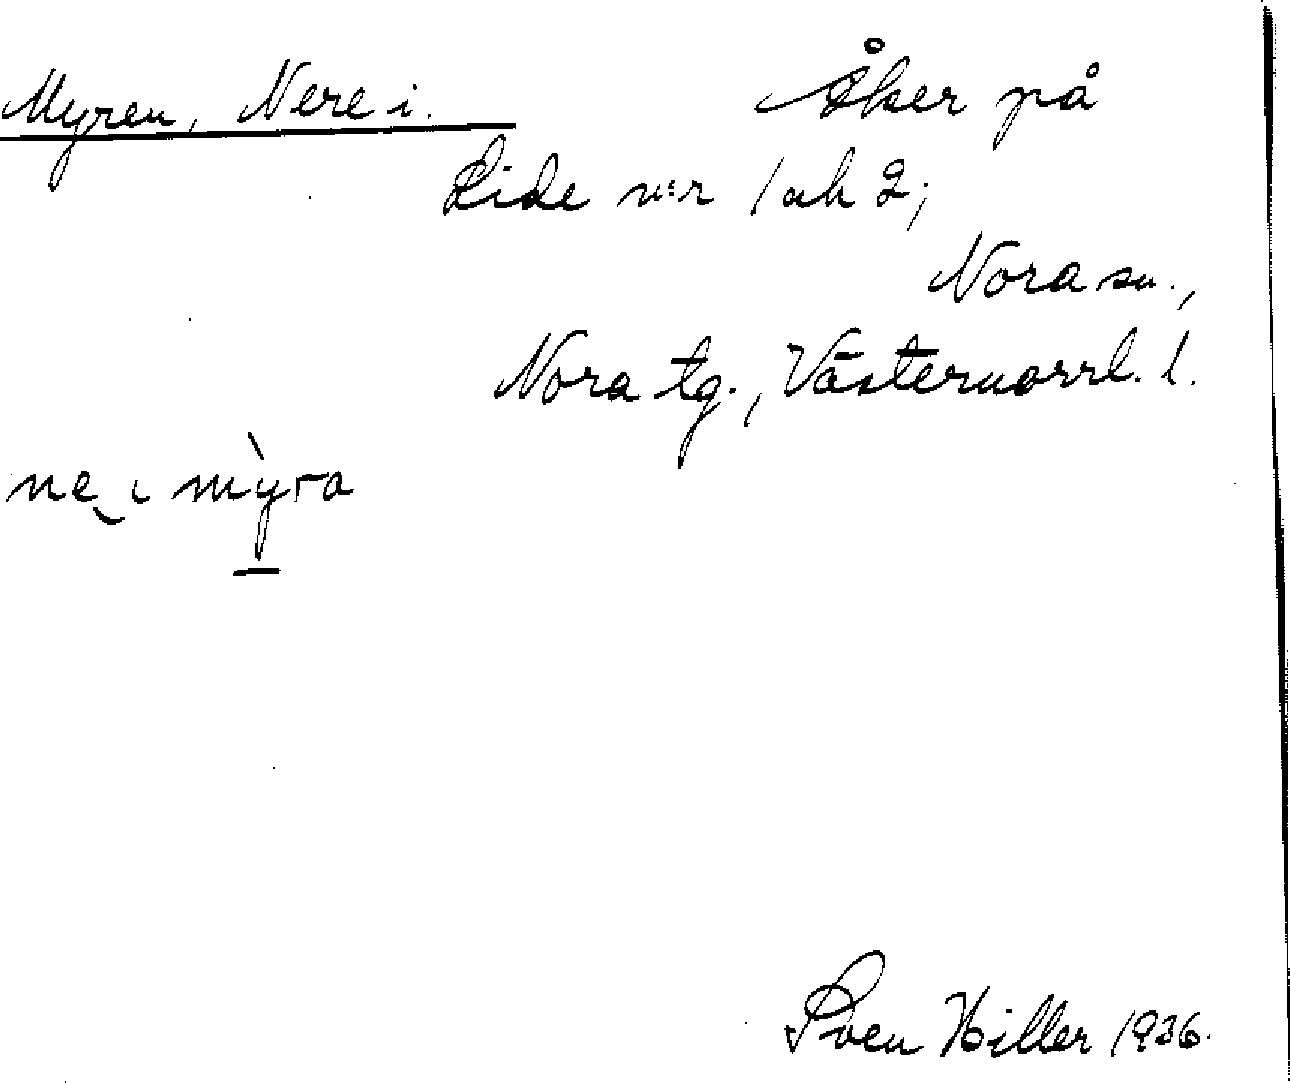 Myren, Nere i. Åker på
Lide n:r 1 och 2;
Nora sn.,
Nora tg., Västernorrl. l.
ne̮ ɩ mỳra
Sven Hiller 1936.